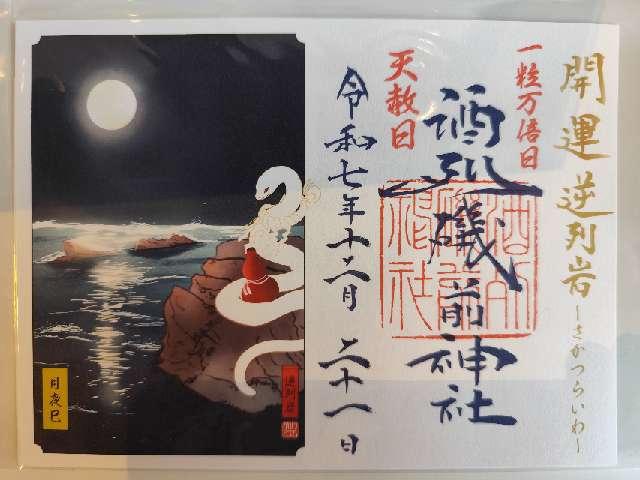 開運 逆列岩 ～さかつらいわ～
一粒万倍日
天赦日
酒列磯前神社
令和七年十二月二十一日
月夜巳
逆列岩